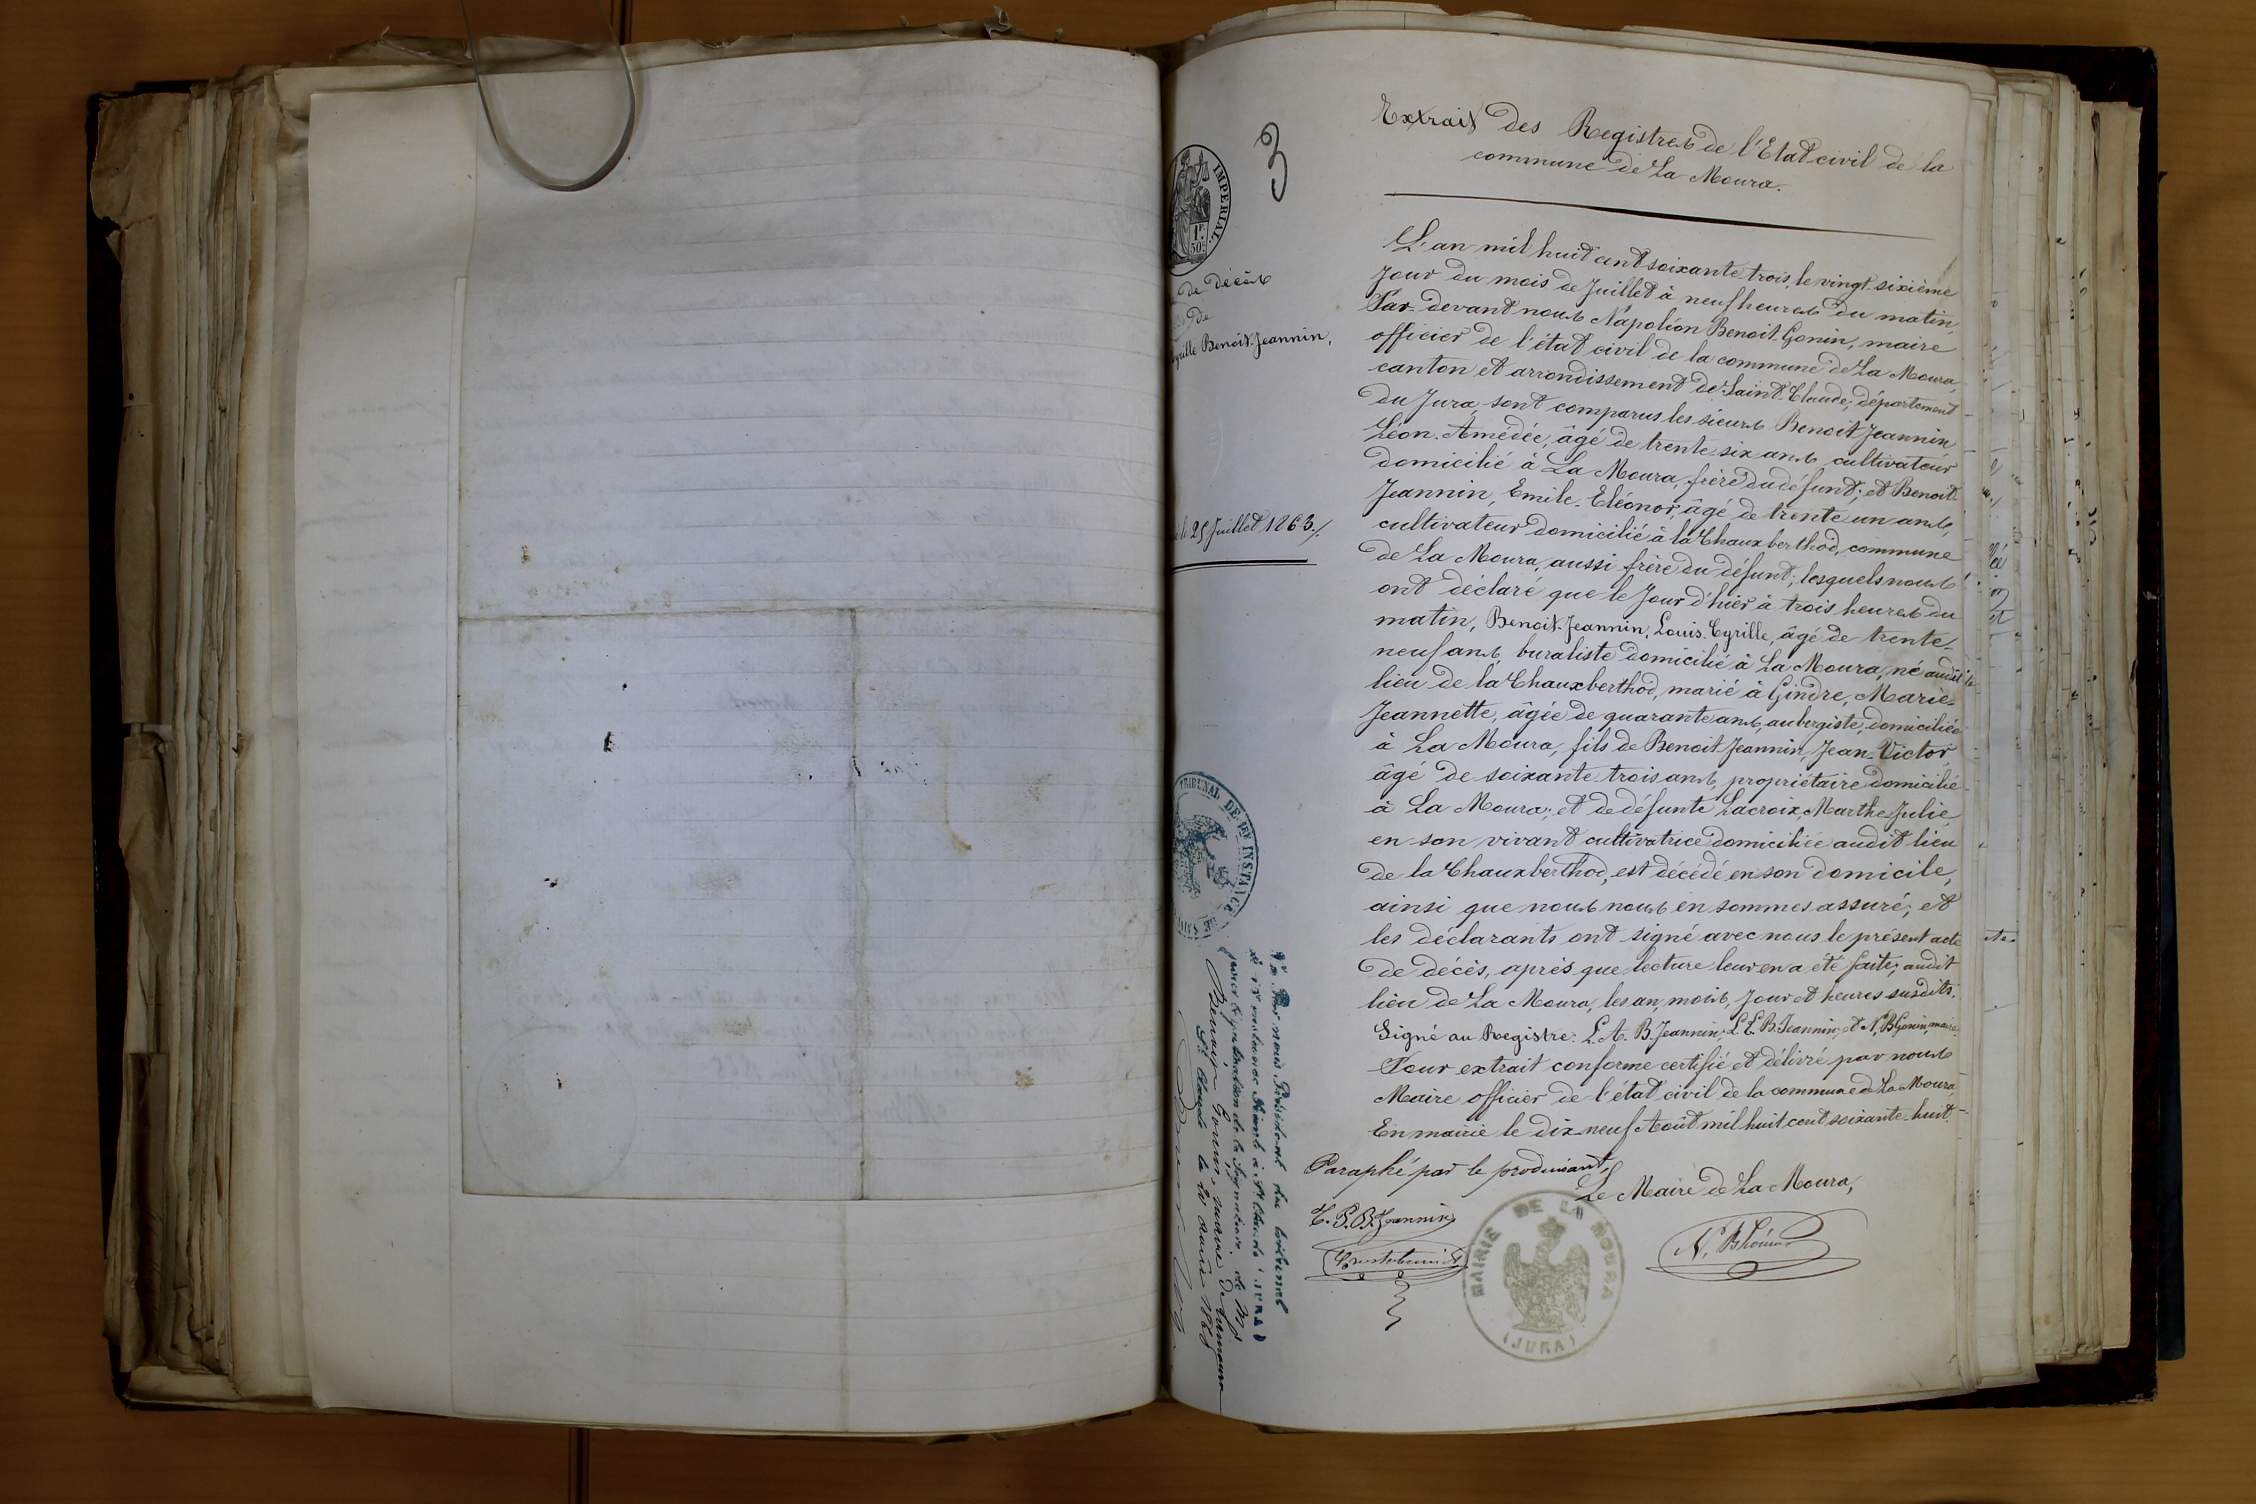 3
IMPERIAL
1F
50c
de décès
de
Cyrille Benoit-Jeannin,
le 25 Juillet 1863./.
TRIBUNAL DE 1ERE INSTANCE
Extrait des Registres de l'Etat civil de la
commune de La Moura.
L'an mil huit cent soixante-trois, le vingt-sixième
Jour du mois de Juillet à neuf heures du matin,
Par-devant nous Napoléon Benoit-Gonin, maire
officier de l'état civil de la commune de La Moura,
canton et arrondissement de Saint-Claude, département
du Jura, sont comparus les sieurs Benoit Jeannin
Léon-Amédée, âgé de trente six ans, cultivateur
domicilié à La Moura, frère du défunt; et Benoit-
Jeannin, Emile-Eléonor, âgé de trente un ans,
cultivateur domicilié à la Chauxberthod, commune
de La Moura, aussi frère du défunt; lesquels nous
ont déclaré que le Jour d'hier à trois heures du
matin, Benoit-Jeannin, Louis-Cyrille, âgé de trente-
neuf ans, buraliste domicilié à La Moura, né audit
lieu de la Chauxberthod, marié à Gindre, Marie-
Jeannette, âgée de quarante ans, aubergiste, domiciliée
à La Moura, fils de Benoit Jeannin, Jean-Victor,
âgé de soixante trois ans, propriétaire domicilié
à La Moura; et de défunte Lacroix, Marthe Julie,
en son vivant cultivatrice domiciliée audit lieu
de la Chauxberthod, est décédé en son domicile,
ainsi que nous nous en sommes assuré; et
les déclarants ont signé avec nous le présent acte
de décès, après que lecture leur en a été faite; audit
lieu de La Moura, les an, mois, Jour et heures susdits.
Signé au Registre: L. A. B. Jeannin; L. E. B. Jeannin; et N. B. Gonin, maire.
Pour extrait conforme certifié et délivré par nous
Maire officier de l'état civil de la commune de La Moura,
En mairie le dix-neuf Août mil huit cent soixante-huit.
Paraphé par le produisant,
Le Maire de La Moura,
Jeannin
N. B. Gonin
MAIRIE DE LA MOURA
(JURA)
Vu Par nous Président du tribunal
de 1re instance séant à St Claude (JURA)
pour légalisation de la signature de Mr
Benoit Gonin, maire de Lamoura
St Claude le 21 août 1868